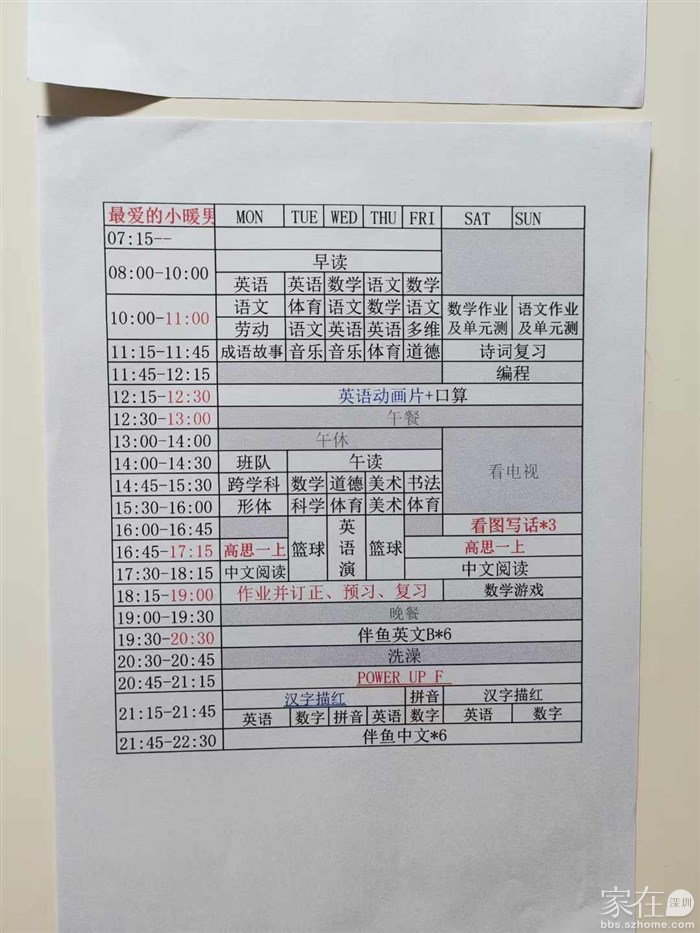 最爱的小暖男 MON TUE WED THU FRI SAT SUN
07:15--
08:00-10:00 早读
英语 英语 数学 语文 数学
10:00-11:00 语文 体育 语文 数学 语文 数学作业及单元测 语文作业及单元测
劳动 语文 英语 英语 多维
11:15-11:45 成语故事 音乐 音乐 体育 道德 诗词复习
11:45-12:15 编程
12:15-12:30 英语动画片+口算
12:30-13:00 午餐
13:00-14:00 午休 看电视
14:00-14:30 班队 午读
14:45-15:30 跨学科 数学 道德 美术 书法
15:30-16:00 形体 科学 体育 美术 体育
16:00-16:45 篮球 英语演 篮球 看图写话*3
16:45-17:15 高思一上 高思一上
17:30-18:15 中文阅读 中文阅读
18:15-19:00 作业并订正、预习、复习 数学游戏
19:00-19:30 晚餐
19:30-20:30 伴鱼英文B*6
20:30-20:45 洗澡
20:45-21:15 POWER UP F
21:15-21:45 汉字描红 拼音 汉字描红
英语 数字 拼音 英语 数字 英语 数字
21:45-22:30 伴鱼中文*6
家在深圳
bbs.szhome.com